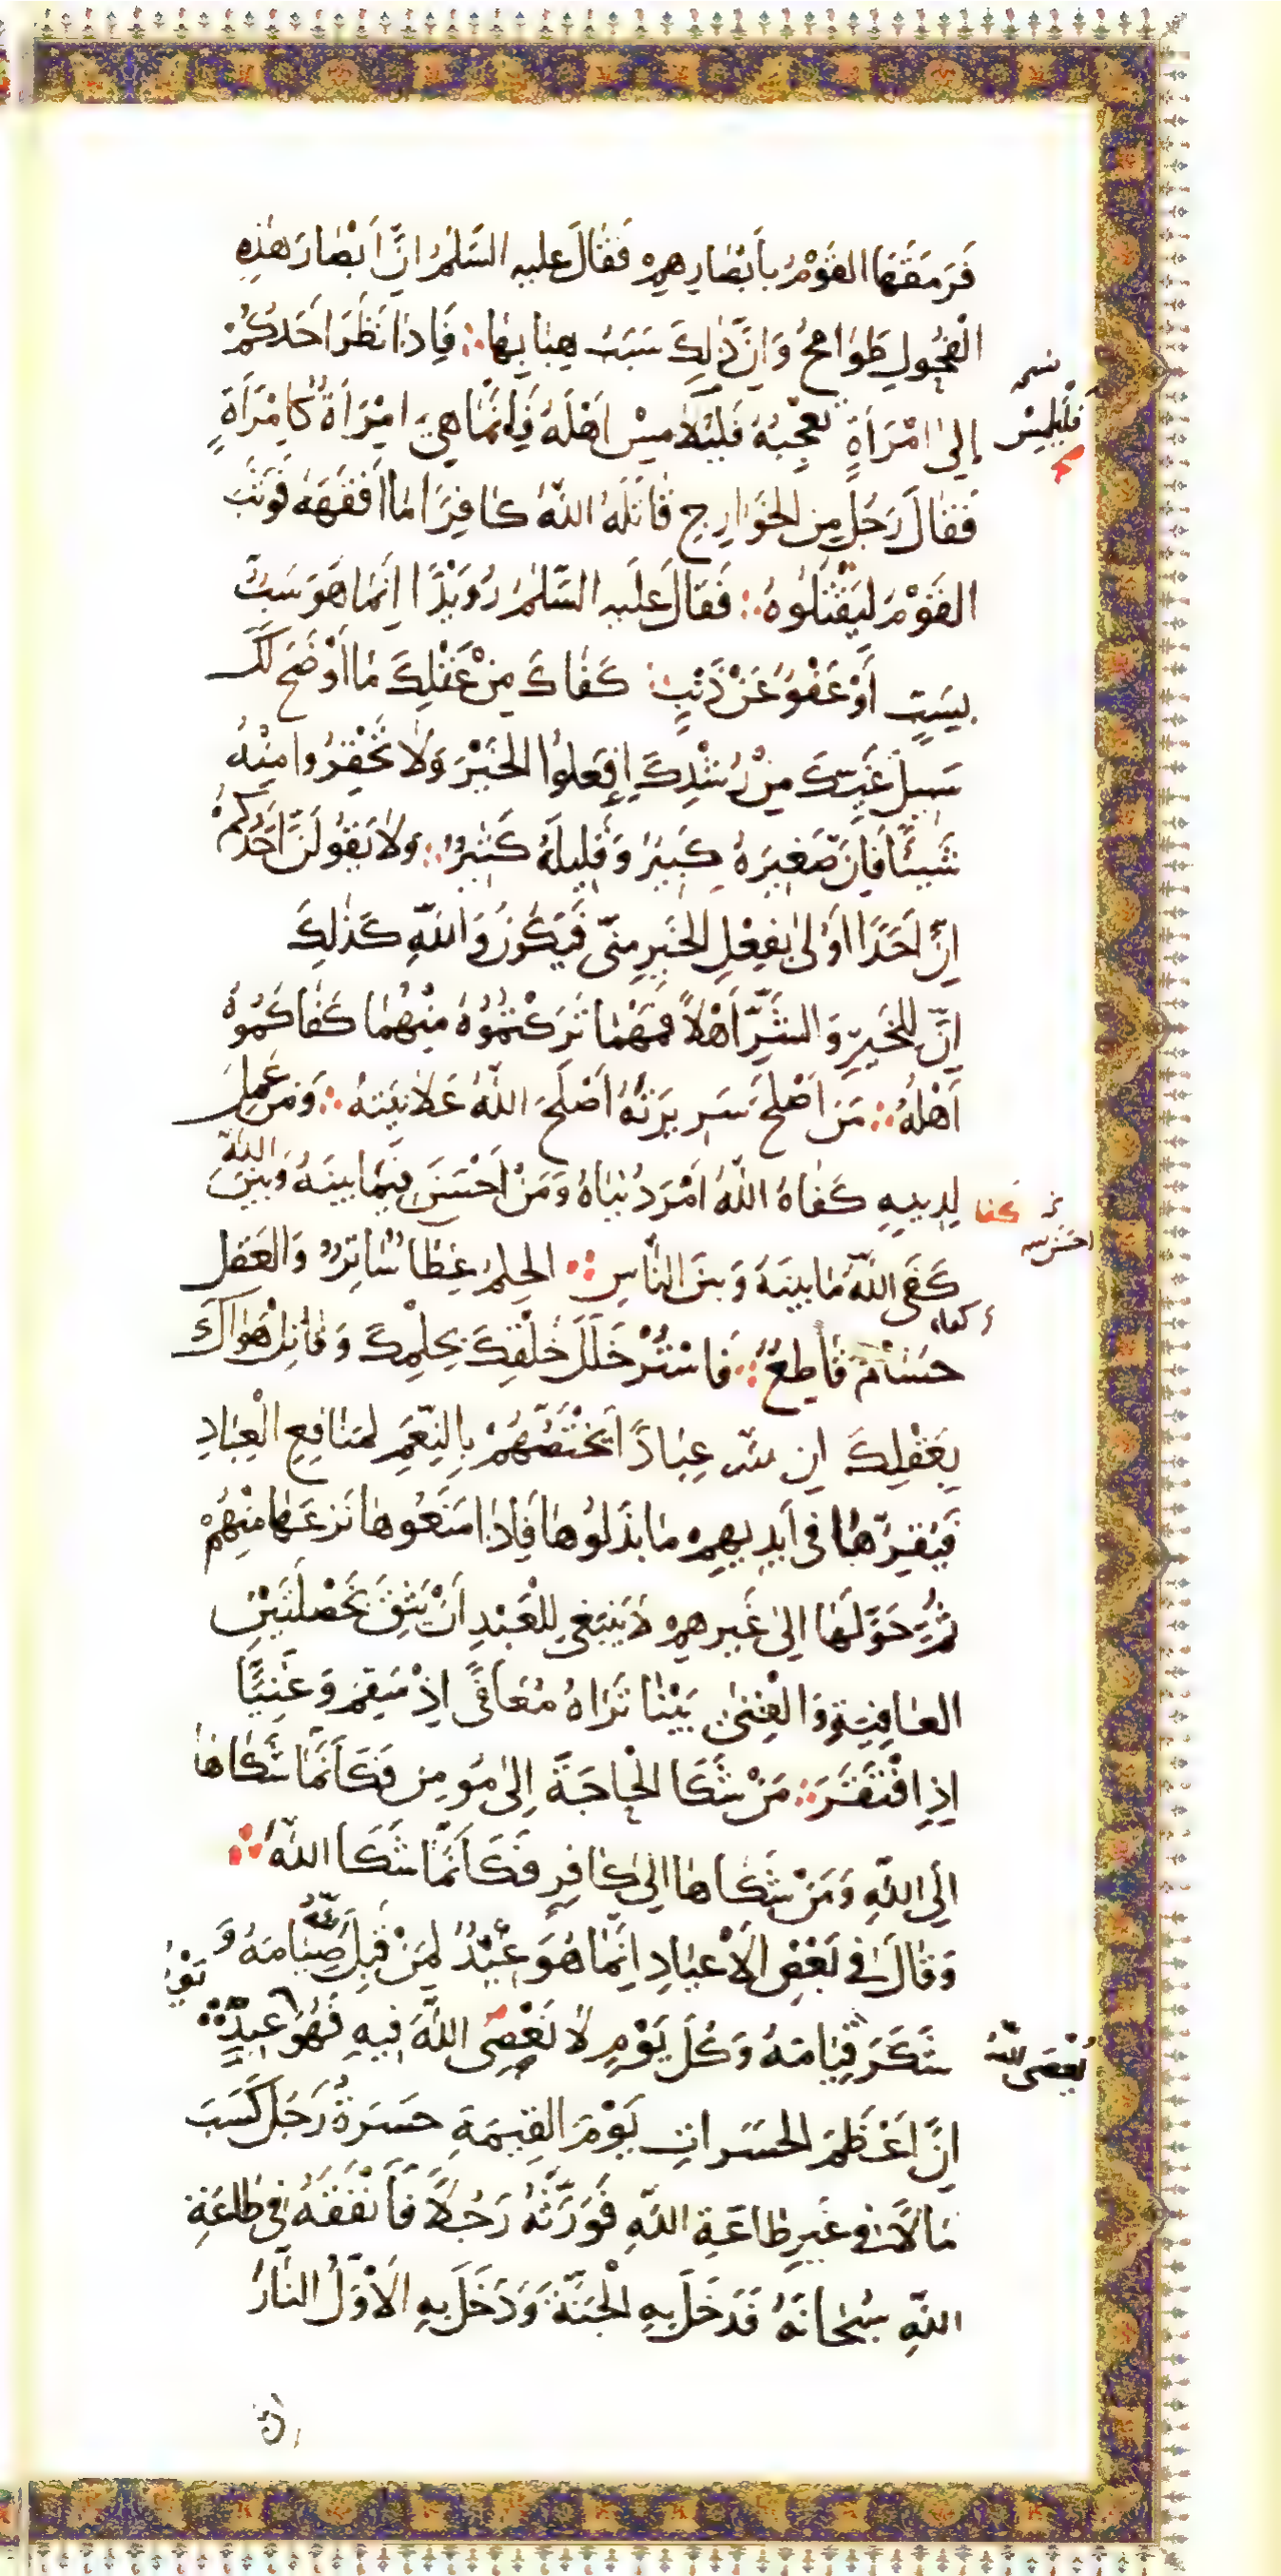 فَرَمَقَهَا القَوْمُ بِأَبْصَارِهِمْ فَقَالَ عليه السَّلٰمُ اِنَّ اَبْصَارَ هٰذِهِ
الْفُحُولِ طَوَامِحُ وَاِنَّ ذٰلِكَ سَبَبُ هِبَابِهَا ؞ فَاِذَا نَظَرَ اَحَدُكُمْ
اِلىٰ امْرَأَةٍ تُعْجِبُهُ فَلْيُلَامِسْ اَهْلَهُ فَاِنَّمَا هِيَ امْرَأَةٌ كَامْرَأَةٍ
فَلْيَلْمِسْ
فَقَالَ رَجُلٌ مِنَ الخَوَارِجِ قَاتَلَهُ اللّٰهُ كَافِرًا مَا اَفْقَهَهُ فَوَثَبَ
القَوْمُ لِيَقْتُلُوهُ ؞ فَقَالَ عَلَيهِ السَّلٰمُ رُوَيْدًا اِنَّمَا هُوَ سَبٌّ
بِسَبٍّ أَوْ عَفْوٌ عَنْ ذَنْبٍ ؞ كَفَاكَ مِنْ عَقْلِكَ مَا اَوْضَحَ لَكَ
سَبِيلَ غَيِّكَ مِنْ رُشْدِكَ اِفْعَلُوا الخَيْرَ وَلَا تَحْقِرُوا مِنْهُ
شَيْئًا فَاِنَّ صَغِيرَهُ كَبِيرٌ وَقَلِيلَهُ كَثِيرٌ ؞ وَلَا يَقُولَنَّ اَحَدُكُمْ
اِنَّ اَحَدًا اَوْلىٰ بِفِعْلِ الخَيرِ مِنّى فَيَكُونُ وَاللّٰهِ كَذٰلِكَ
اِنَّ لِلْخَيرِ وَالشَّرِّ اَهْلاً فَمَهْمَا تَرَكْتُمُوهُ مِنْهُمَا كَفَاكُمُوهُ
اَهْلُهُ ؞ مَنَ اَصْلَحَ سَرِيرَتَهُ اَصْلَحَ اللّٰهُ عَلَانِيَتَهُ ؞ وَمَن عَمِلَ
لِدِينِهِ كَفَاهُ اللّٰهُ اَمْرَ دُنْيَاهُ وَمَنْ اَحْسَنَ فِيمَا بينَهُ وَبَيْنَ اللّٰه
كَفَى اللّٰهُ مَا بينَهُ وَبينَ النَّاسِ ؞ الحِلمُ غِطَاءٌ سَاتِرٌ وَالعَقلُ
حُسَامٌ قَاطِعٌ ؞ فَاسْتُرْ خَلَلَ خُلْقِكَ بِحِلْمِكَ وَقَاتِلْ هَوَاكَ
بِعَقْلِكَ اِن للّٰه عِبَادًا يَخْتَصُّهُمْ بِالنِّعَمِ لِمَنَافِعِ الْعِبَادِ
فَيُقِرُّهَا فى اَيدِيهِم مَا بَذَلُوهَا فَاِذَا مَنَعُوهَا نَزَعَهَا مِنْهُمْ
ثُمَّ حَوَّلَهَا اِلىٰ غَيرِهِم لَا يَنبَغى لِلْعَبْدِ اَنْ يَثِقَ بِخَصْلَتَيْنِ
العَافِيَةِ وَالْغِنىٰ بَيْنَا تَرَاهُ مُعَافًى اِذْ سَقِمَ وَغَنِيًّا
اِذِ افْتَقَرَ ؞ مَنْ شَكَا الْحَاجَةَ اِلىٰ مُومِنٍ فَكَاَنَّمَا شَكَاهَا
اِلَى اللّٰهِ وَمَنْ شَكَاهَا اِلىٰ كَافِرٍ فَكَاَنَّمَا شَكَا اللّٰهَ ؞
وَقَالَ فِي بَعْضِ الاَعْيَادِ اِنَّمَا هُوَ عِيْدٌ لِمَنْ قَبِلَ اللّٰهُ صِيَامَهُ وَ
شَكَرَ قِيَامَهُ وَكُلَّ يَوْمٍ لَا نَعْصِى اللّٰهَ فِيهِ فَهُوَ عِيدٌ
يُعْصَى اللّٰهُ
اِنَّ اَعْظَمَ الحَسَرَاتِ يَوْمَ القِيٰمَةِ حَسَرَةُ رَجُلٍ كَسَبَ
مَالًا فِي غَيرِ طَاعَةِ اللّٰهِ فَوَرَّثَهُ رَجُلاً فَاَنْفَقَهُ فِى طَاعَةِ
اللّٰهِ سُبْحَانَهُ فَدَخَلَ بِهِ الْجَنَّةَ وَدَخَلَ بِهِ الاَوَّلُ النَّارَ